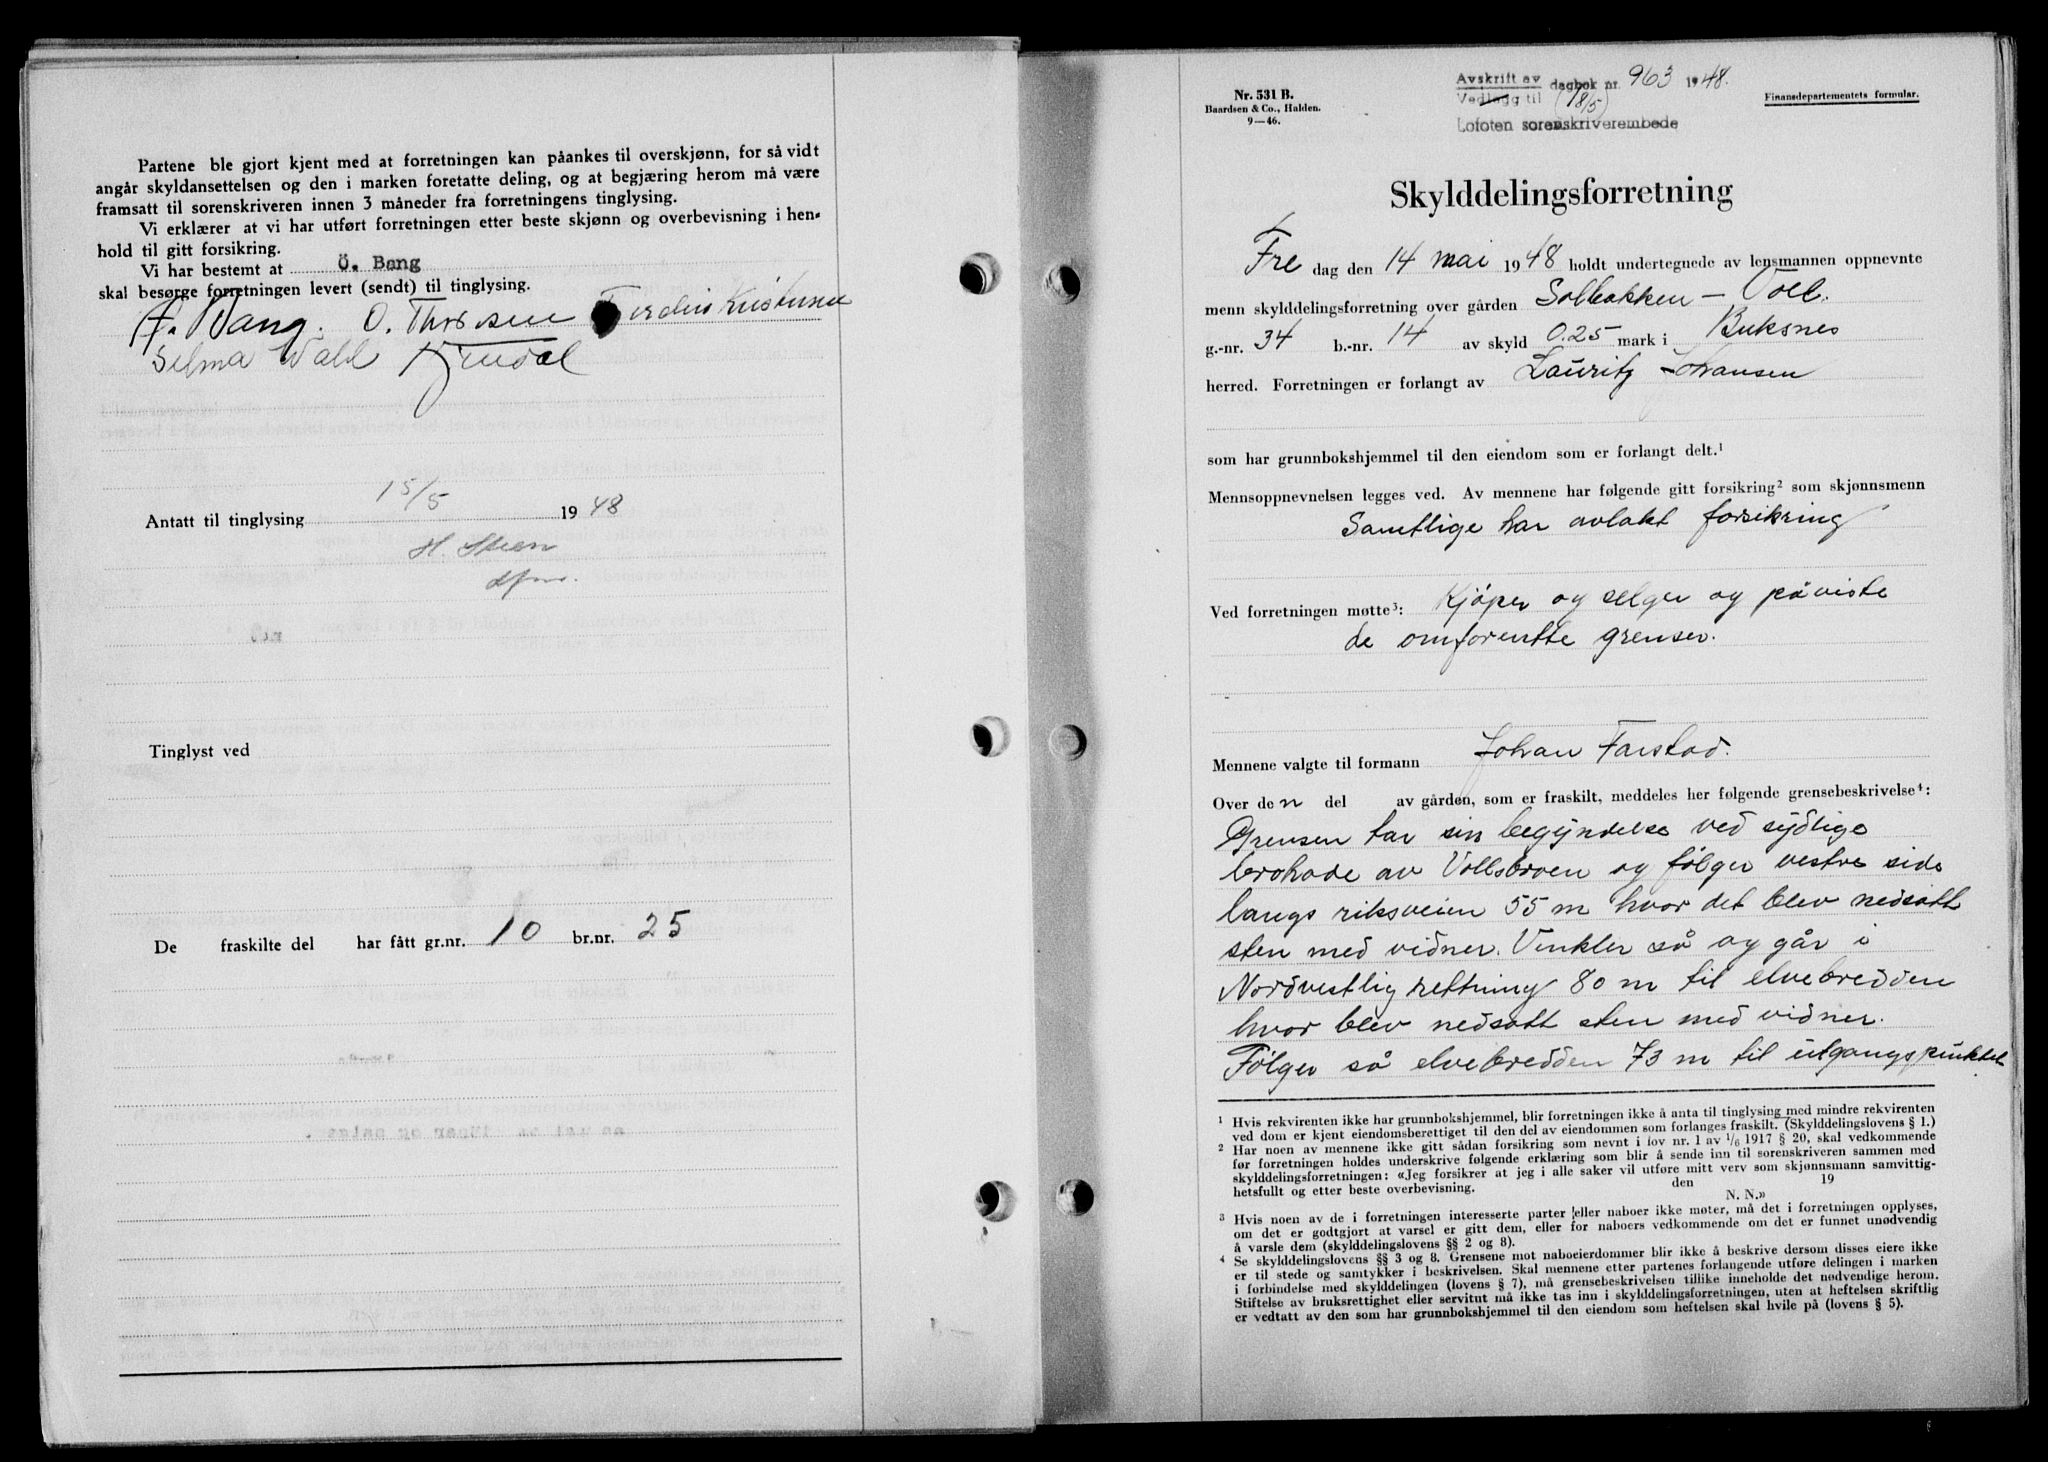 Partene ble gjort kjent med at forretningen kan påankes til overskjønn, for så vidt
angår skyldansettelsen og den i marken foretatte deling, og at begjæring herom må være
framsatt til sorenskriveren innen 3 måneder fra forretningens tinglysing.
Vi erklærer at vi har utført forretningen etter beste skjønn og overbevisning i hen-
hold til gitt forsikring.
Vi har bestemt at Ö. Bang
skal besørge forretningen levert (sendt) til tinglysing.
Bang. O. Thorsen
Selma Wahl
Antatt til tinglysing 15/5 1948
H. Steen
Tinglyst ved
De fraskilte del har fått gr.nr. 10 br.nr. 25
Nr. 531 B.
Baardsen & Co., Halden.
9—46.
Avskrift av dagbok nr. 963 1948.
Vedlegg til (18/5)
Lofoten sorenskriverembede
Finansdepartementets formular.
Skylddelingsforretning
Fre dag den 14 mai 1948 holdt undertegnede av lensmannen oppnevnte
menn skylddelingsforretning over gården Solbakken – Voll.
g.-nr. 34 b.-nr. 14 av skyld 0.25 mark i Buksnes
herred. Forretningen er forlangt av Lauritz Johansen
som har grunnbokshjemmel til den eiendom som er forlangt delt.¹
Mennsoppnevnelsen legges ved. Av mennene har følgende gitt forsikring² som skjønnsmenn
Samtlige har avlakt forsikring
Ved forretningen møtte³: Kjøper og selger og påviste
de omforentte grenser.
Mennene valgte til formann Johan Farstad.
Over den del av gården, som er fraskilt, meddeles her følgende grensebeskrivelse⁴:
Grensen tar sin begyndelse ved sydlige
brohode av Vollsbroen og følger vestre side
langs riksveien 55 m hvor det blev nedsatt
sten med vidner. Vinkler så og går i
Nordvestlig rettning 80 m til elvebredden
hvor blev nedsatt sten med vidner.
Følger så elvebredden 73 m til utgangspunktet
¹ Hvis rekvirenten ikke har grunnbokshjemmel, blir forretningen ikke å anta til tinglysing med mindre rekvirenten
ved dom er kjent eiendomsberettiget til den del av eiendommen som forlanges fraskilt. (Skylddelingslovens § 1.)
² Har noen av mennene ikke gitt sådan forsikring som nevnt i lov nr. 1 av 1/6 1917 § 20, skal vedkommende
før forretningen holdes underskrive følgende erklæring som blir å sende inn til sorenskriveren sammen med
skylddelingsforretningen: «Jeg forsikrer at jeg i alle saker vil utføre mitt verv som skjønnsmann samvittig-
hetsfullt og etter beste overbevisning. den 19
N. N.»
³ Hvis noen av de i forretningen interesserte parter eller naboer ikke møter, må det i forretningen opplyses,
om det er godtgjort at varsel er gitt dem, eller for naboers vedkommende om det er funnet unødvendig
å varsle dem (skylddelingslovens §§ 2 og 8).
⁴ Se skylddelingslovens §§ 3 og 8. Grensene mot naboeierdommer blir ikke å beskrive dersom disses eiere ikke
er til stede og samtykker i beskrivelsen. Skal mennene etter partenes forlangende utføre delingen i marken
i forbindelse med skylddelingen (lovens § 7), må grensebeskrivelsen tillike inneholde det nødvendige herom.
Stiftelse av bruksrettighet eller servitut må ikke tas inn i skylddelingsforretningen, uten at heftelsen skriftlig
er vedtatt av den som har grunnbokshjemmel til den eiendom som heftelsen skal hvile på (lovens § 5).